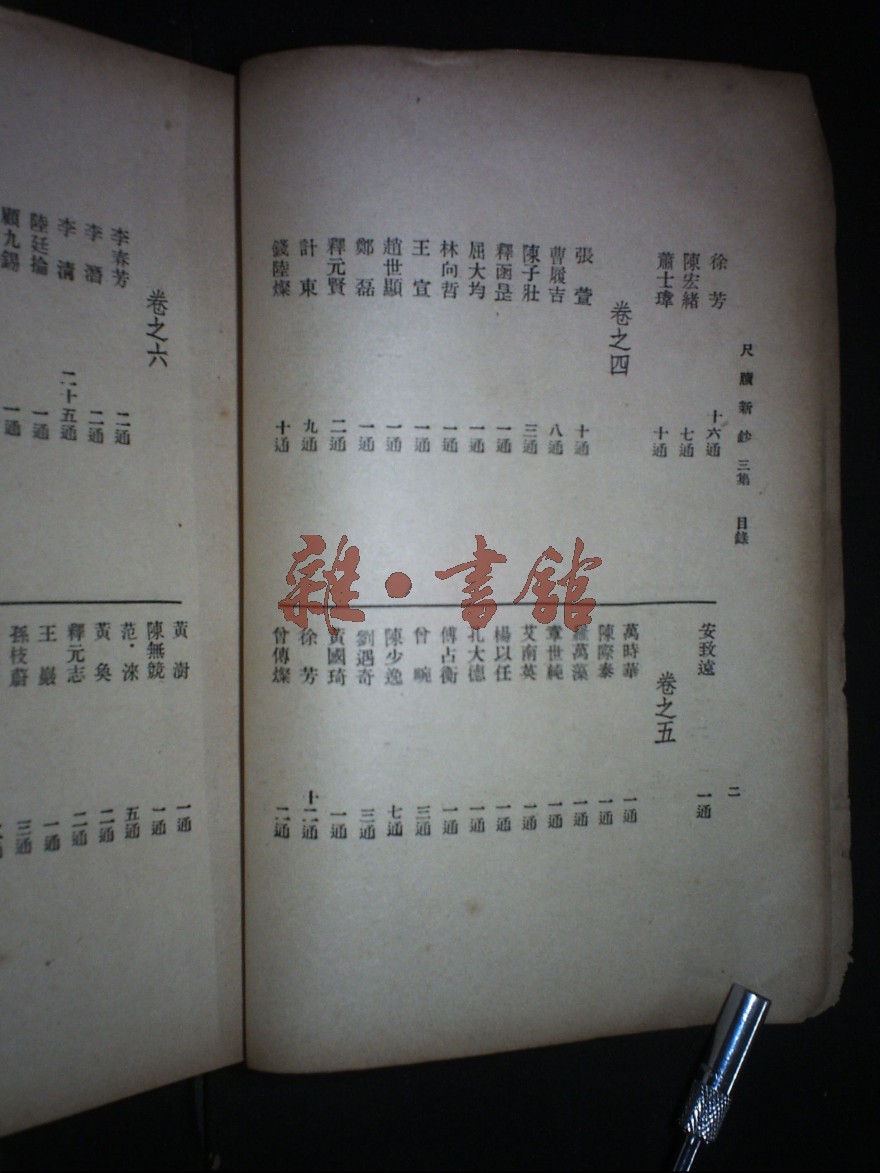 尺牘新鈔 三集 目錄
二
徐芳 十六通
陳宏緒 七通
蕭士瑋 十通
卷之四
張萱 十通
曹履吉 八通
陳子壯 三通
釋函昰 一通
屈大均 一通
林向哲 一通
王宣 一通
趙世顯 一通
鄭磊 一通
釋元賢 二通
計東 九通
錢陸燦 十通
安致遠 一通
卷之五
萬時華 一通
陳際泰 一通
羅萬藻 一通
章世純 一通
艾南英 一通
楊以任 一通
孔大德 一通
傅占衡 一通
曾畹 三通
陳少逸 七通
劉遇奇 三通
黃國琦 一通
徐芳 十二通
曾傳燦 二通
卷之六
李春芳 二通
李潛 二通
李清 二十五通
陸廷掄 一通
顧九錫 一通
黃澍 一通
陳無競 一通
范淶 五通
黃奐 二通
釋元志 二通
王巖 一通
孫枝蔚 三通
雜·書館